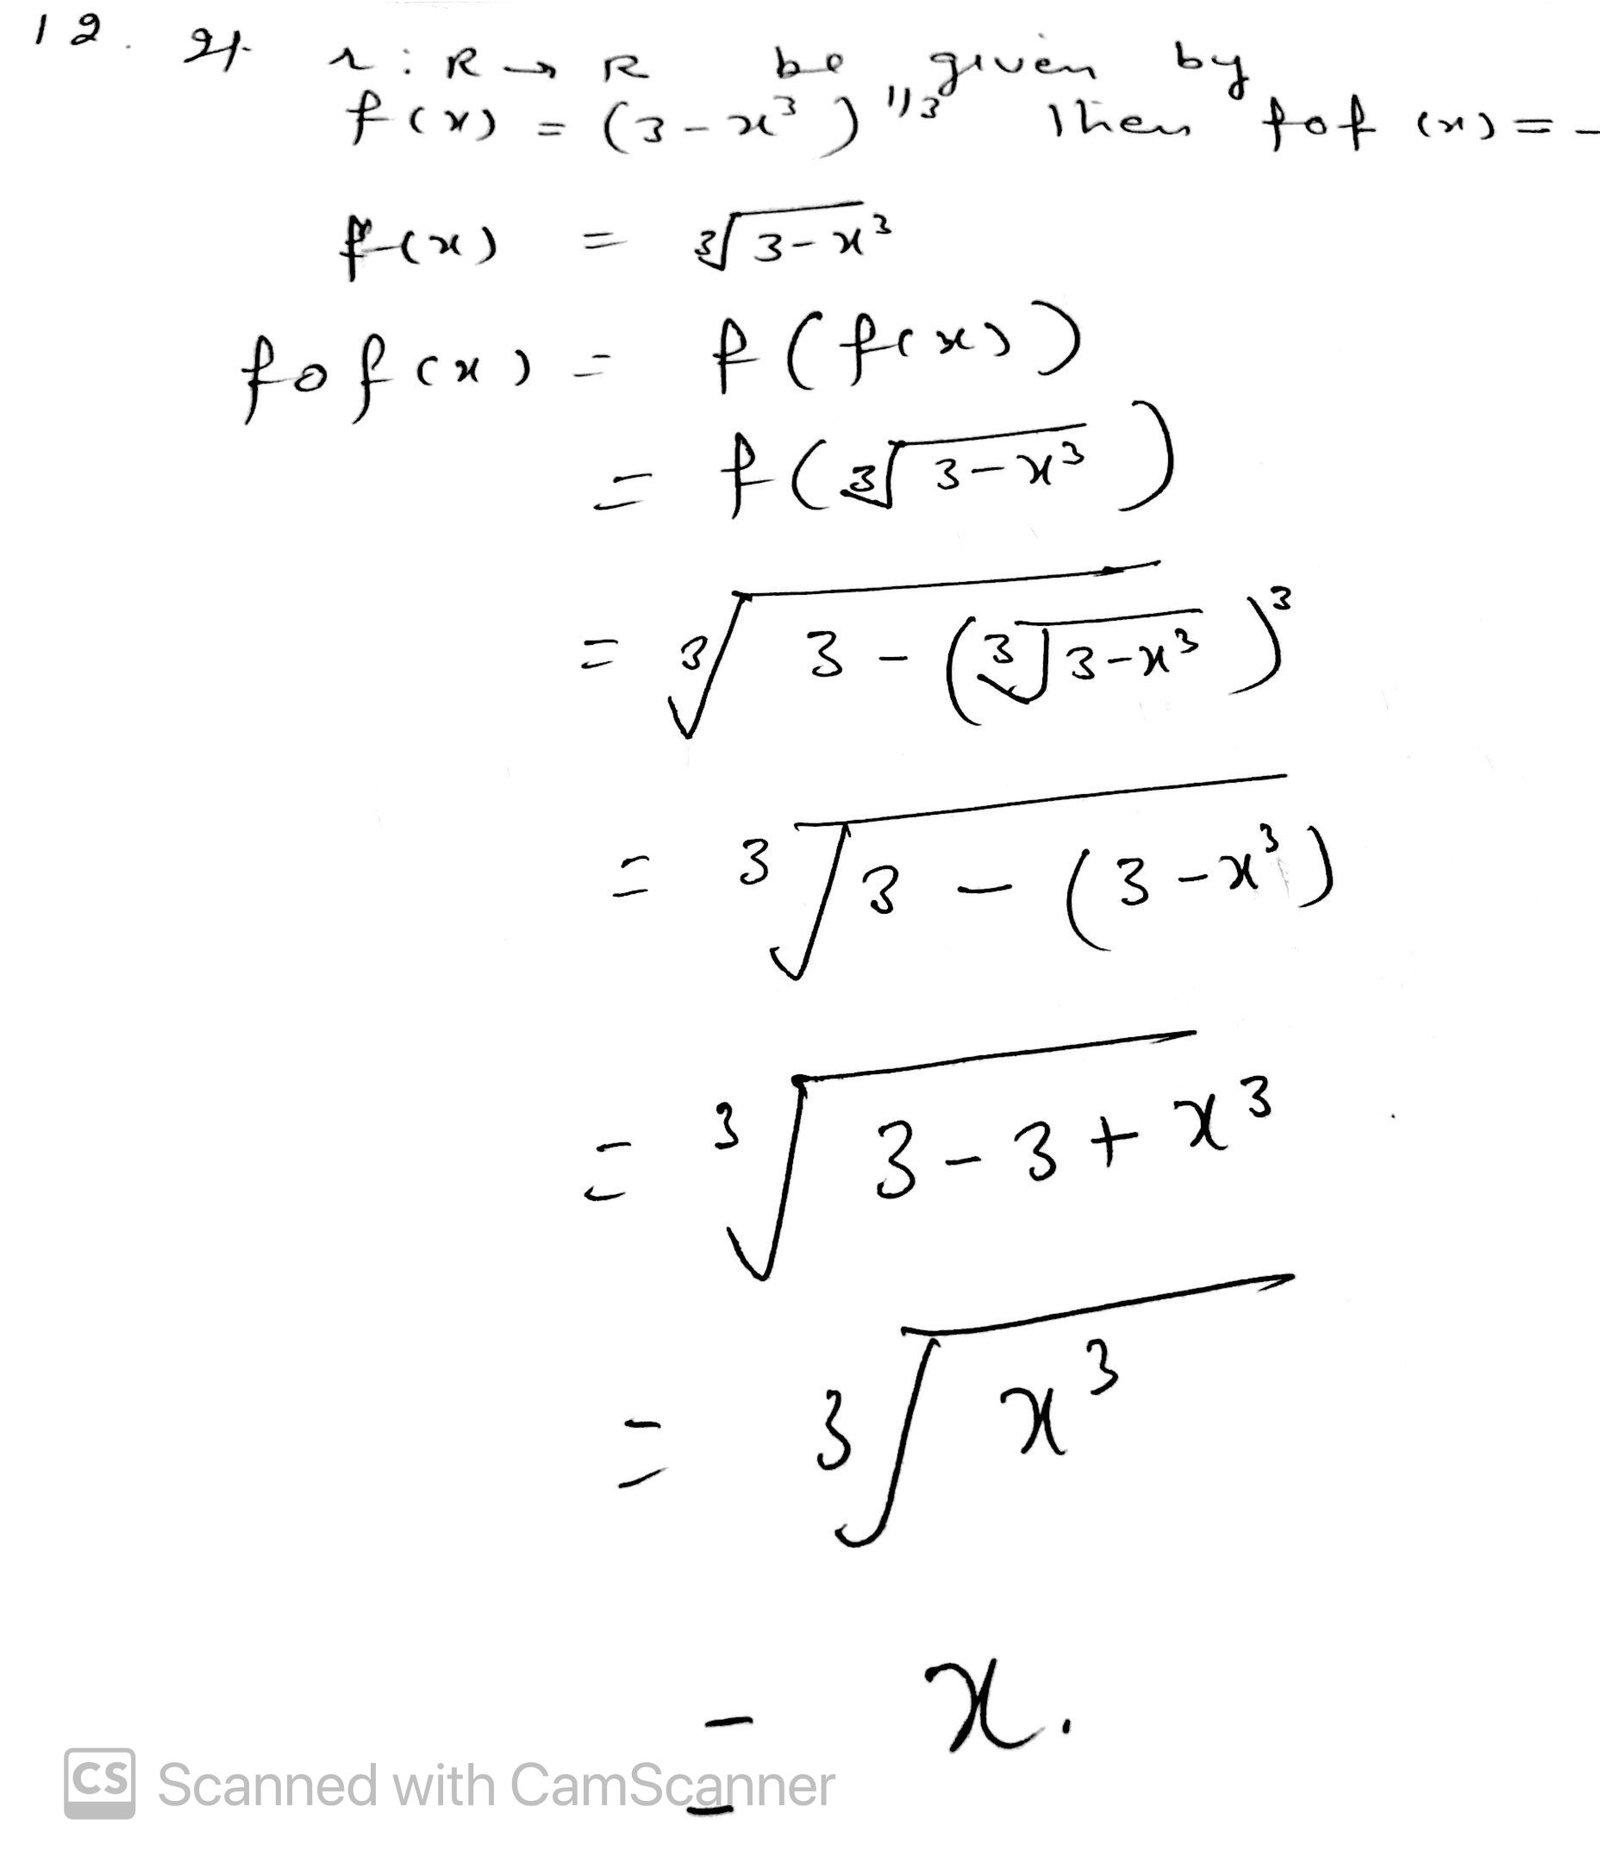 12. If f : R → R be given by
f(x) = (3-x³)^1/3 Then fof (x) = -
f(x) = ∛(3-x³)
fof(x) = f(f(x))
= f(∛(3-x³))
= ∛(3-(∛(3-x³))³)
= ∛(3-(3-x³))
= ∛(3-3+x³)
= ∛(x³)
= x.
CS Scanned with CamScanner